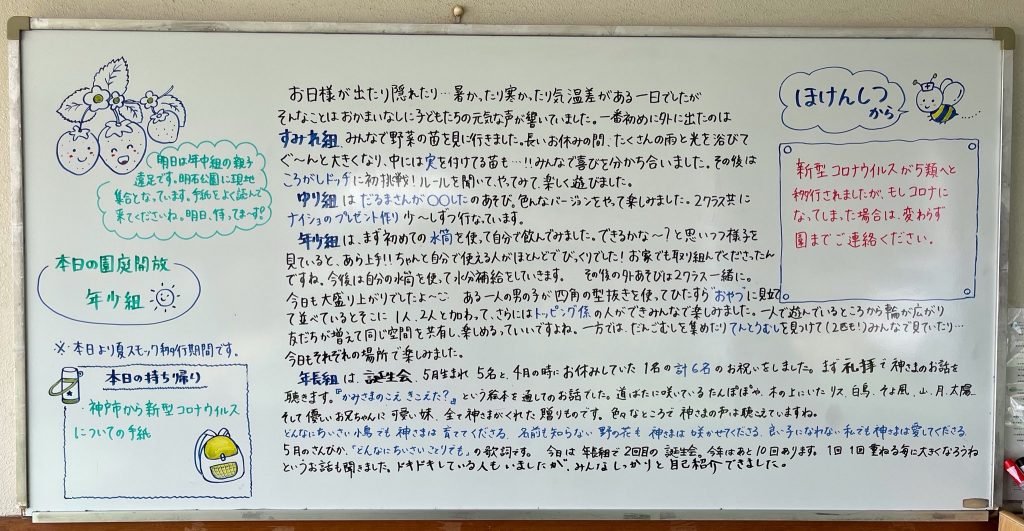 明日は年中組の親子
遠足です。明石公園に現地
集合となっています。手紙をよく読んで
来てくださいね。明日、待ってま〜す!
本日の園庭開放
年少組
※本日より夏スモック移行期間です。
本日の持ち帰り
・神戸市から新型コロナウイルス
についての手紙
お日様が出たり隠れたり…暑かったり寒かったり気温差がある一日でしたが
そんなことはおかまいなしに子どもたちの元気な声が響いていました。一番初めに外に出たのは
すみれ組 みんなで野菜の苗を見に行きました。長いお休みの間、たくさんの雨と光を浴びて
ぐ〜んと大きくなり、中には実を付けてる苗も…!!みんなで喜びを分かち合いました。その後は
ころがしドッヂに初挑戦!ルールを聞いて、やってみて、楽しく遊びました。
ゆり組は だるまさんが〇〇したのあそび。色んなバージョンをやって楽しみました。2クラス共に
ナイショのプレゼント作り 少〜しずつ行なっています。
年少組は、まず初めての水筒を使って自分で飲んでみました。できるかな〜?と思いつつ様子を
見ていると、あら上手!!ちゃんと自分で使える人がほとんどでびっくりでした!お家でも取り組んでくださったん
ですね。今後は自分の水筒を使って水分補給をしていきます。 その後の外あそびは2クラス一緒に。
今日も大盛り上がりでしたよ〜 ある一人の男の子が四角の型抜きを使ってひたすら"おやつ"に見立て
て並べているとそこに 1人、2人と加わって、さらにはトッピング係の人ができみんなで楽しみました。一人で遊んでいるところから輪が広がり
友だちが増えて同じ空間を共有し、楽しめるっていいですよね。一方では、だんごむしを集めたりてんとうむしを見つけて(2匹も!)みんなで見ていたり…
今日もそれぞれの場所で楽しみました。
年長組は、誕生会。5月生まれ 5名と、4月の時にお休みしていた 1名の計6名のお祝いをしました。まず礼拝で神さまのお話を
聴きます。『かみさまのこえ きこえた?』という絵本を通してのお話でした。道ばたに咲いているたんぽぽや、木の上にいたリス、白鳥、そよ風、山、月、太陽、
そして優しいお兄ちゃんに可愛い妹、全て神さまがくれた贈りものです。色々なところで神さまの声は聴こえていますね。
どんなにちいさい小鳥でも 神さまは 育ててくださる、名前も知らない 野の花も 神さまは 咲かせてくださる、良い子になれない私でも神さまは愛してくださる
5月のさんびか、「どんなにちいさいことりでも」の歌詞です。 今日は 年長組で2回目の 誕生会。今年はあと10回あります。1回1回 重ねる毎に大きくなろうね
というお話も聞きました。ドキドキしている人もいましたが、みんなしっかりと自己紹介できました。
ほけんしつ
から
新型コロナウイルスが5類へと
移行されましたが、もしコロナに
なってしまった場合は、変わらず
園までご連絡ください。